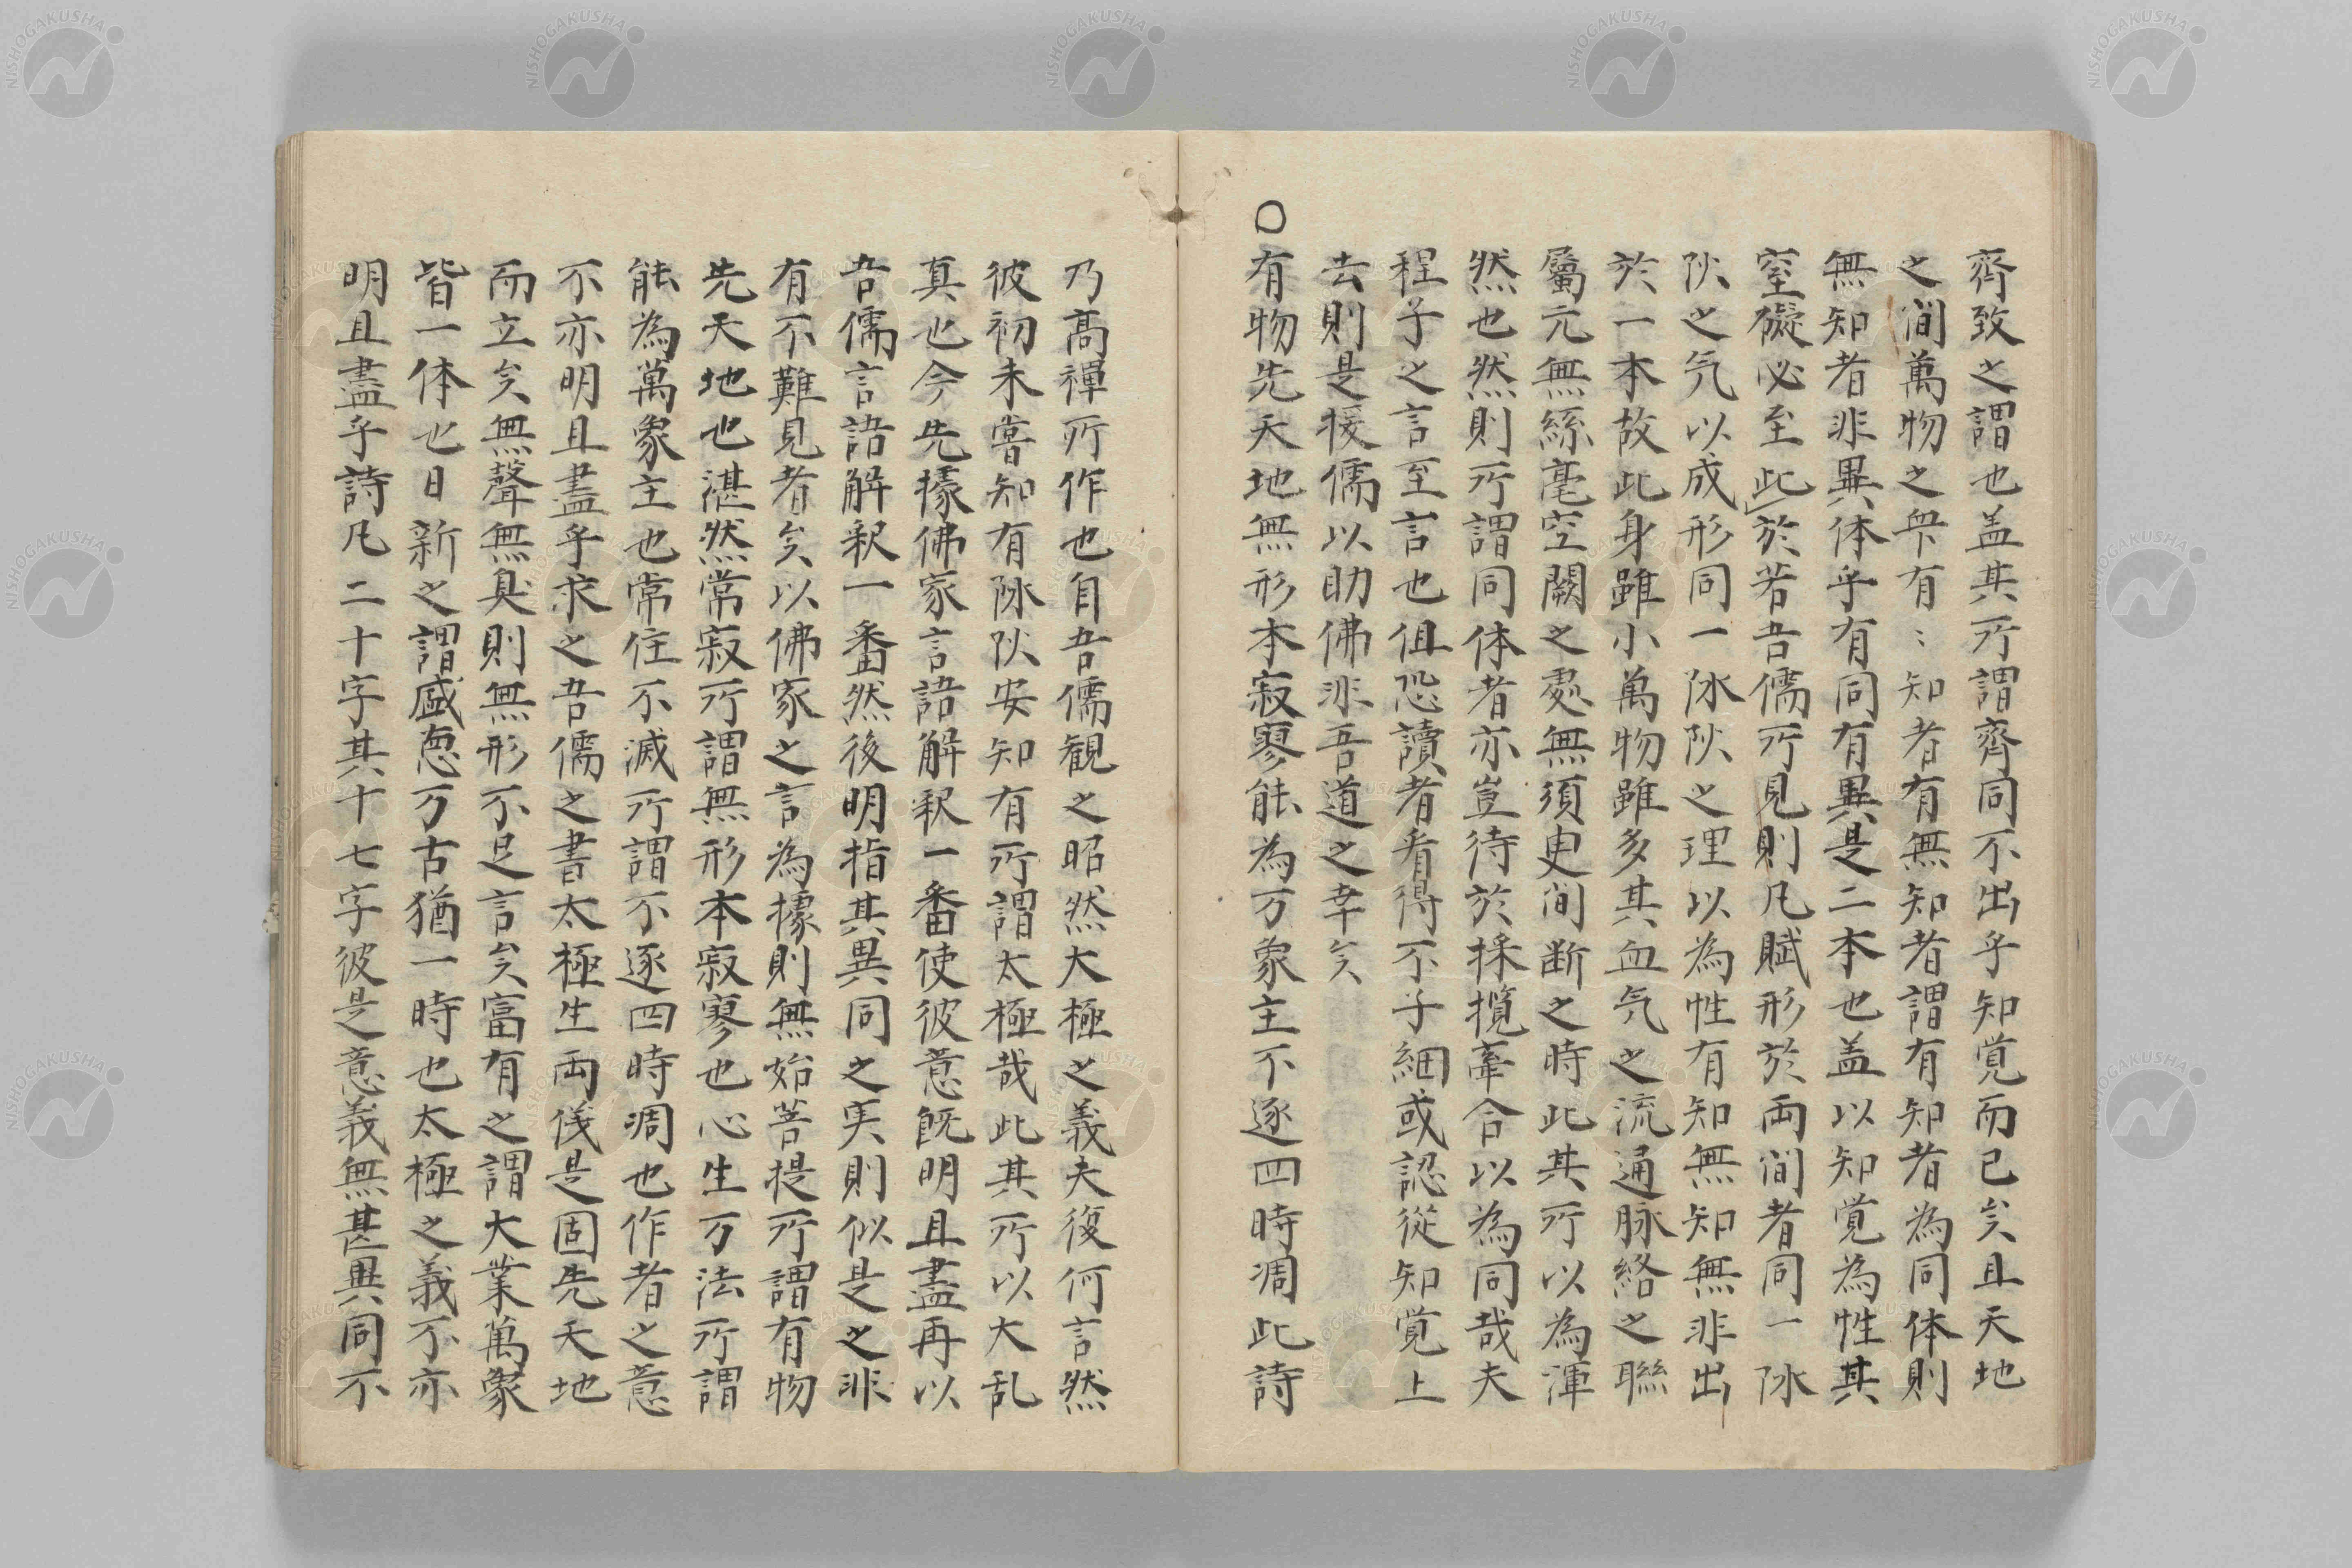 齊致之謂也盖其所謂齊同不出乎知覚而已矣且天地
之間萬物之衆有〻知者有無知者謂有知者為同体則
無知者非異体乎有同有異是二本也盖以知覚為性其
窒礙必至此於若吾儒所見則凡賦形於両間者同一阴
阳之气以成形同一阴阳之理以為性有知無知無非出
於一本故此身雖小萬物雖多其血气之流通脉絡之聯
屬元無絲毫空闕之處無須臾間断之時此其所以為渾
然也然則所謂同体者亦豈待於採攬牽合以為同哉夫
程子之言至言也但恐讀者看得不子細或認從知覚上
去則是援儒以助佛非吾道之幸矣
〇有物先天地無形本寂寥能為万象主不逐四時凋此詩
乃高禪所作也自吾儒観之昭然大極之義夫復何言然
彼初未嘗知有阴阳安知有所謂太極哉此其所以大乱
真也今先據佛家言語解釈一番使彼意既明且盡再以
吾儒言語解釈一番然後明指其異同之実則似是之非
有不難見者矣以佛家之言為據則無始菩提所謂有物
先天地也湛然常寂所謂無形本寂寥也心生万法所謂
能為萬象主也常住不滅所謂不逐四時凋也作者之意
不亦明且盡乎求之吾儒之書太極生両儀是固先天地
而立矣無聲無臭則無形不足言矣富有之謂大業萬象
皆一体也日新之謂盛悳万古猶一時也太極之義不亦
明且盡乎詩凡二十字其十七字彼是意義無甚異同不